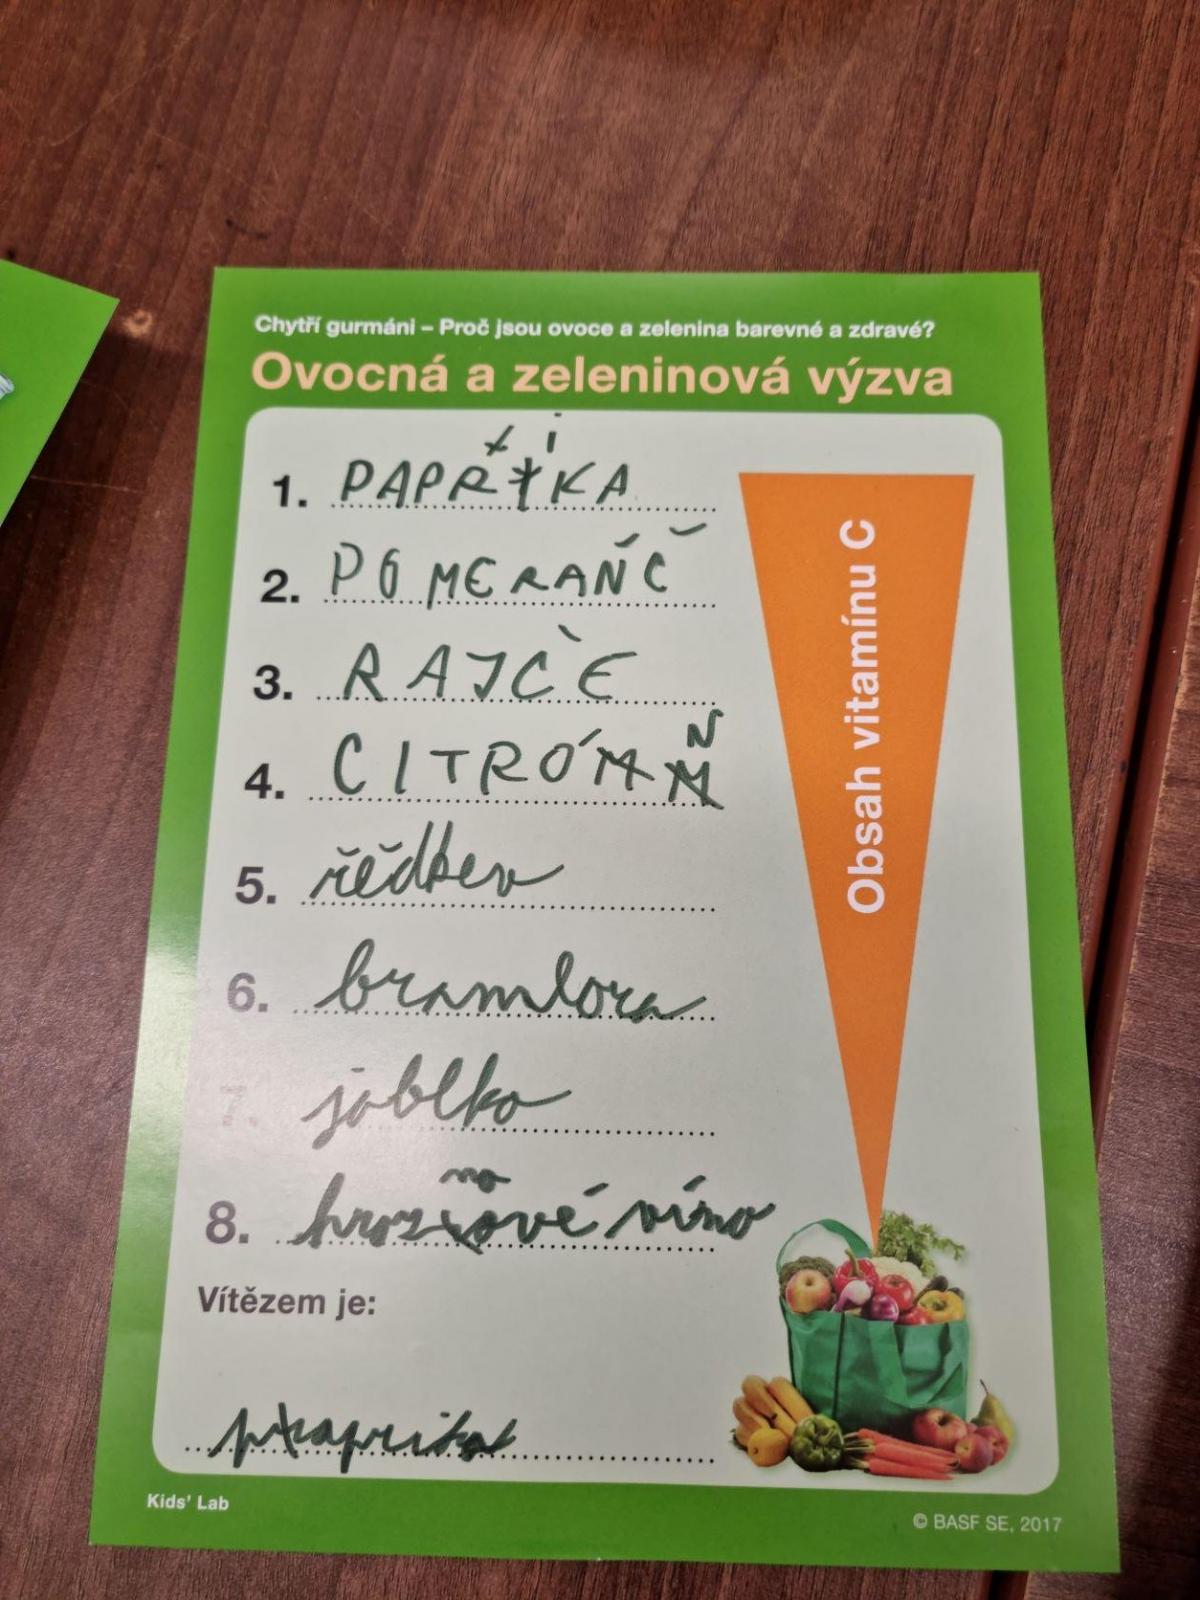 Chytří gurmáni – Proč jsou ovoce a zelenina barevné a zdravé?
Ovocná a zeleninová výzva
1. PAPRIKA
2. POMERAŇČ
3. RAJČE
4. CITRÓN
5. řědkev
6. bramlora
7. jablko
8. hroznové víno
Obsah vitamínu C
Vítězem je:
paprika
Kids' Lab
© BASF SE, 2017